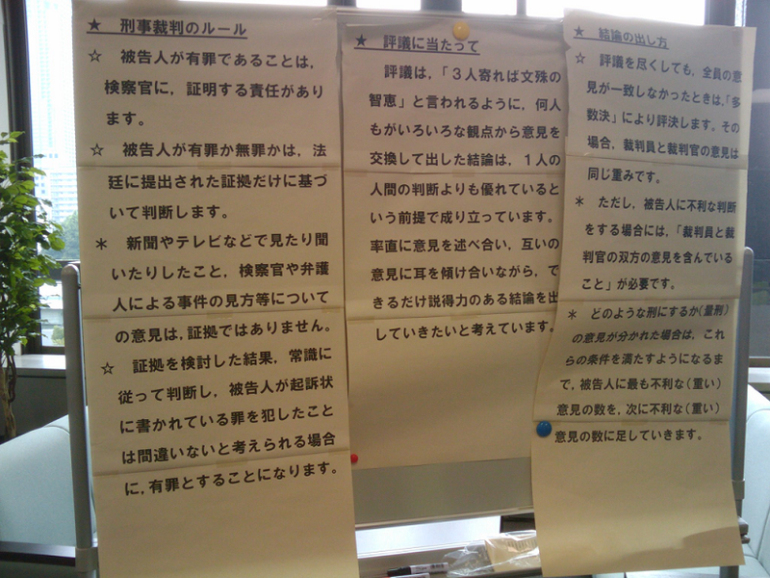 ★ 刑事裁判のルール
☆ 被告人が有罪であることは,
検察官に,証明する責任があり
ます。
☆ 被告人が有罪か無罪かは,法
廷に提出された証拠だけに基づ
いて判断します。
＊ 新聞やテレビなどで見たり聞
いたりしたこと,検察官や弁護
人による事件の見方等について
の意見は,証拠ではありません。
☆ 証拠を検討した結果,常識に
従って判断し,被告人が起訴状
に書かれている罪を犯したこと
は間違いないと考えられる場合
に,有罪とすることになります。
★ 評議に当たって
評議は,「３人寄れば文殊の
智恵」と言われるように,何人
もがいろいろな観点から意見を
交換して出した結論は,１人の
人間の判断よりも優れていると
いう前提で成り立っています。
率直に意見を述べ合い,互いの
意見に耳を傾け合いながら,で
きるだけ説得力のある結論を出
していきたいと考えています。
★ 結論の出し方
☆ 評議を尽くしても,全員の意
見が一致しなかったときは,「多
数決」により評決します。その
場合,裁判員と裁判官の意見は
同じ重みです。
＊ ただし,被告人に不利な判断
をする場合には,「裁判員と裁
判官の双方の意見を含んでいる
こと」が必要です。
＊ どのような刑にするか(量刑)
の意見が分かれた場合は,これ
らの条件を満たすようになるま
で,被告人に最も不利な(重い)
意見の数を,次に不利な(重い)
意見の数に足していきます。